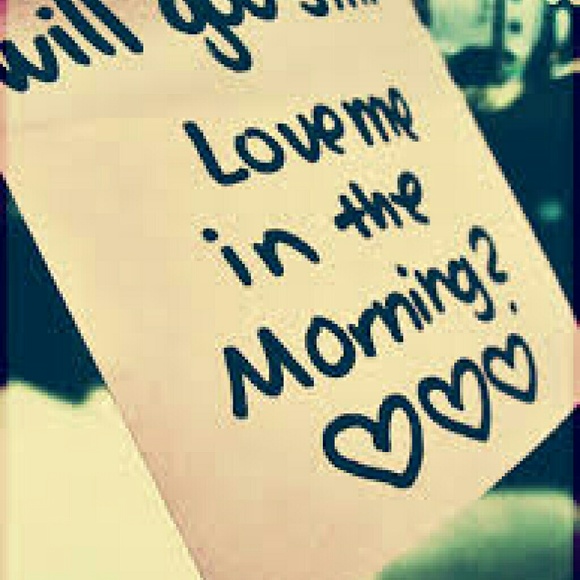 will you still
Love me
in the
Morning?
♡♡♡